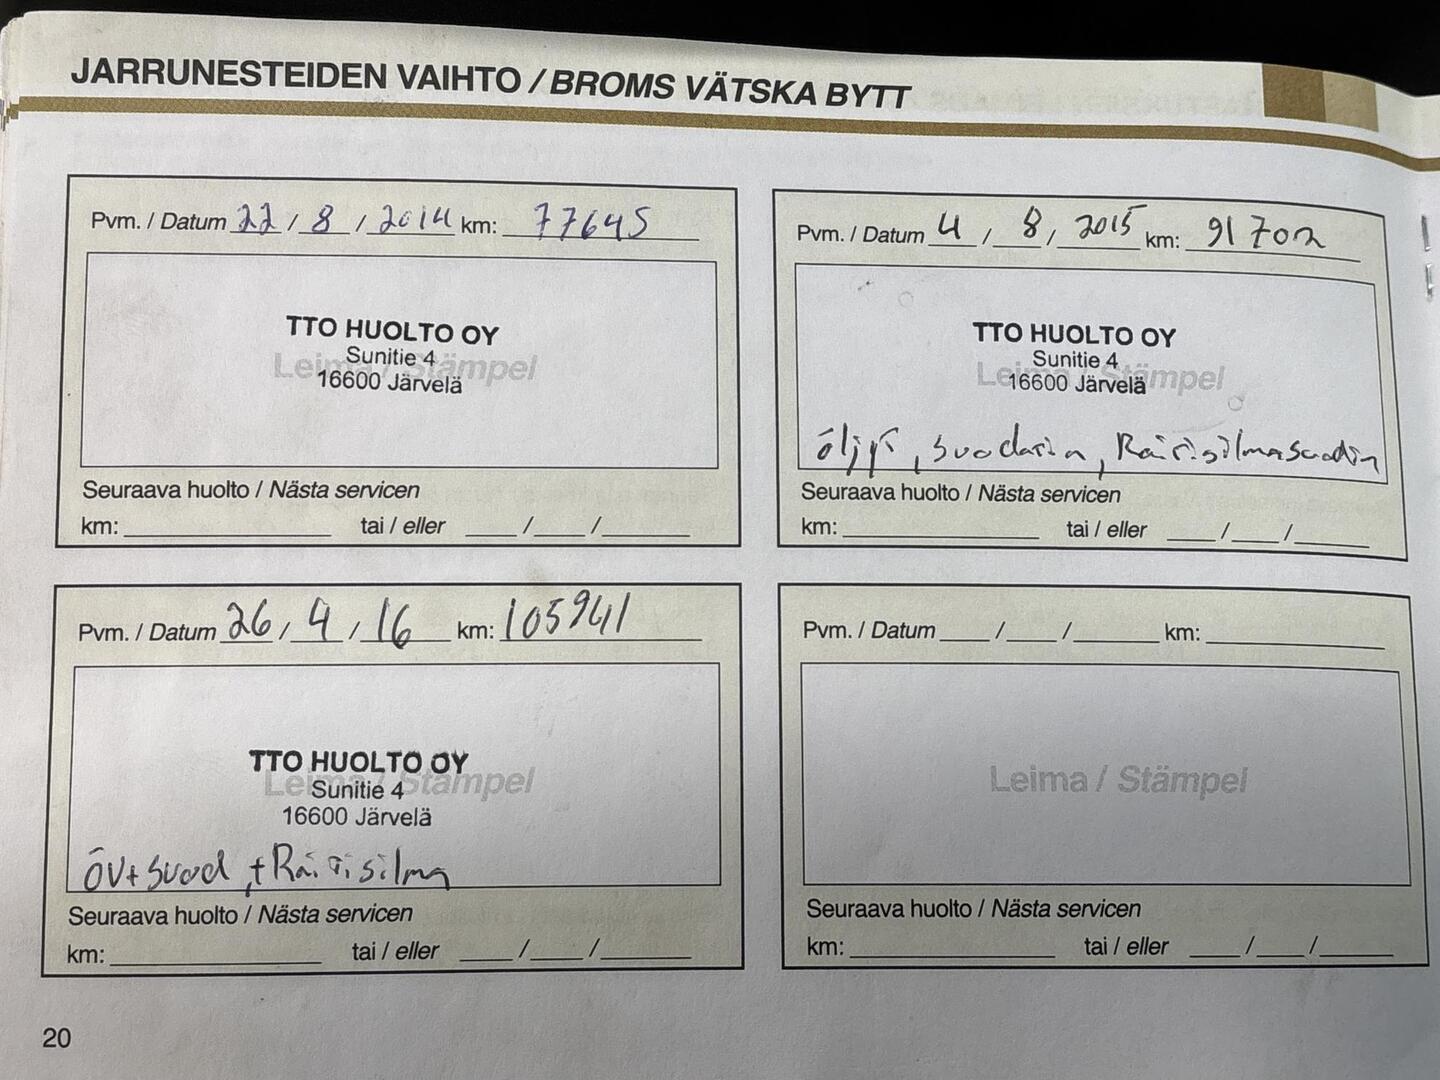 JARRUNESTEIDEN VAIHTO / BROMS VÄTSKA BYTT
Pvm. / Datum 22 / 8 / 2014 km: 77645
TTO HUOLTO OY
Leima / Stämpel
Sunitie 4
16600 Järvelä
Seuraava huolto / Nästa servicen
km: tai / eller / /
Pvm. / Datum 4 / 8 / 2015 km: 91702
TTO HUOLTO OY
Leima / Stämpel
Sunitie 4
16600 Järvelä
öljyt, suodatin, Raitisilmasuodin
Seuraava huolto / Nästa servicen
km: tai / eller / /
Pvm. / Datum 26 / 4 / 16 km: 105941
TTO HUOLTO OY
Leima / Stämpel
Sunitie 4
16600 Järvelä
öv+suod,+Raitisilma
Seuraava huolto / Nästa servicen
km: tai / eller / /
Pvm. / Datum / / km:
Leima / Stämpel
Seuraava huolto / Nästa servicen
km: tai / eller / /
20